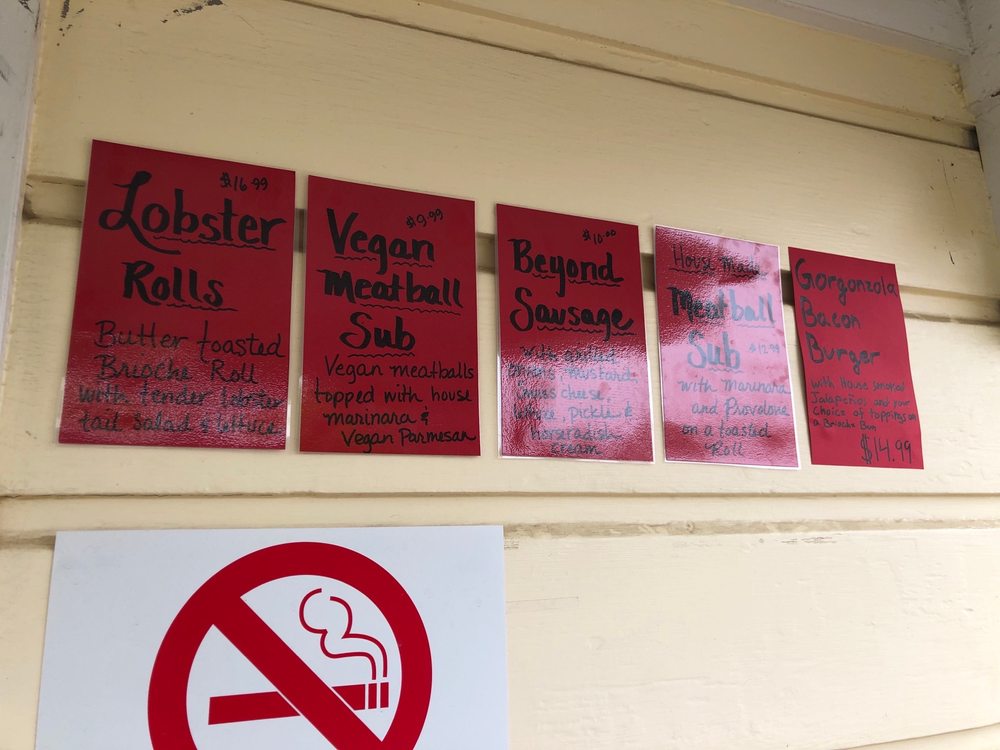 $16.99
Lobster
Rolls
Butter toasted
Brioche Roll
with tender lobster
tail Salad & lettuce
$9.99
Vegan
Meatball
Sub
Vegan meatballs
topped with house
marinara &
Vegan Parmesan
$10.00
Beyond
Sausage
with grilled
onions, mustard,
swiss cheese,
lettuce, pickle, &
horseradish
cream
House Made
Meatball
Sub $12.99
with marinara
and Provolone
on a toasted
Roll
Gorgonzola
Bacon
Burger
with House smoked
Jalapeños and your
Choice of toppings on
a Brioche Bun
$14.99